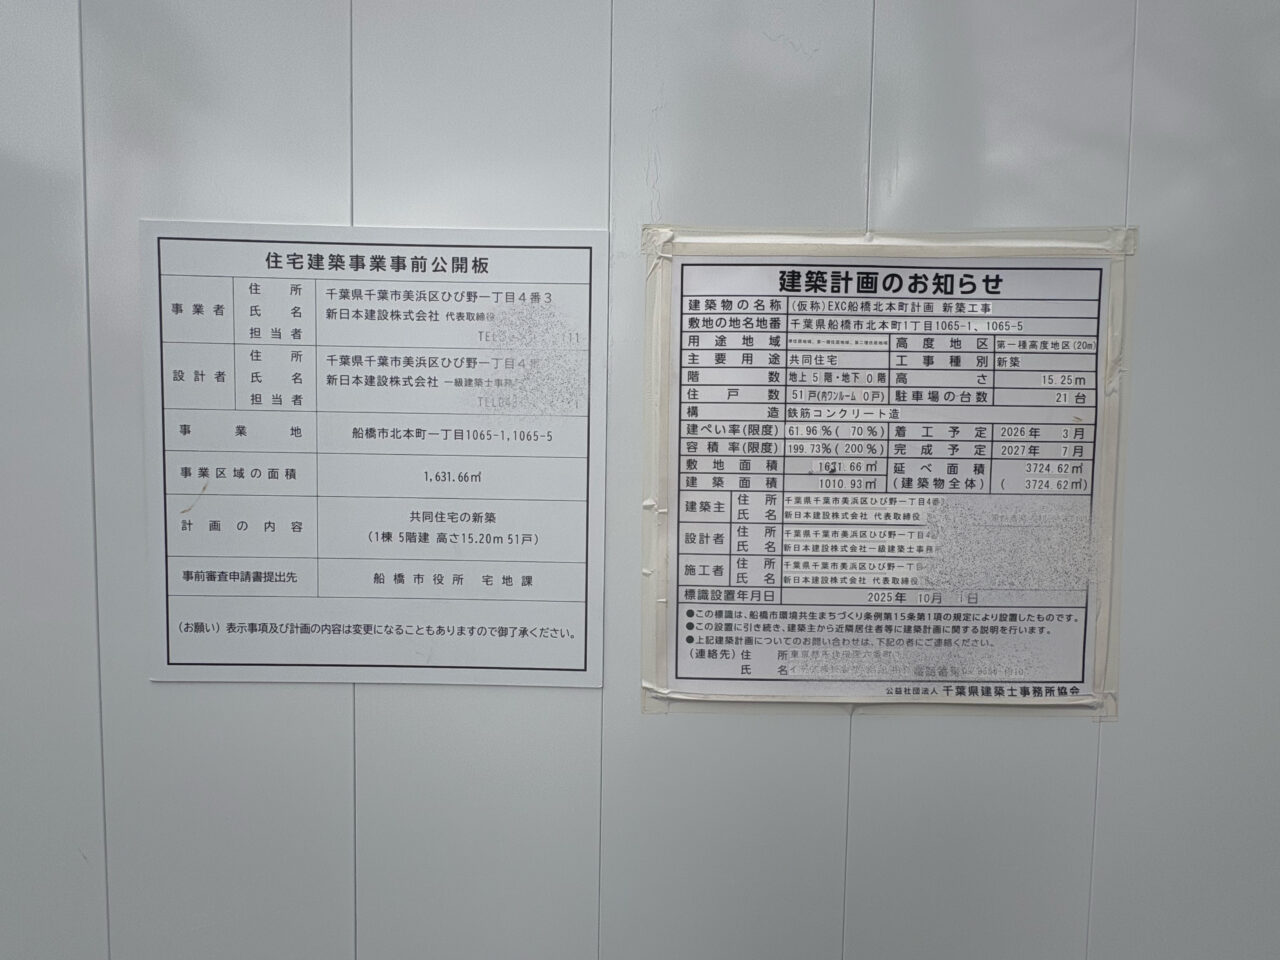 住宅建築事業事前公開板
事業者
住所 千葉県千葉市美浜区ひび野一丁目4番3
氏名 新日本建設株式会社 代表取締役
担当者 TEL
設計者
住所 千葉県千葉市美浜区ひび野一丁目4
氏名 新日本建設株式会社 一級建築士事務
担当者 TEL
事業地 船橋市北本町一丁目1065-1,1065-5
事業区域の面積 1,631.66㎡
計画の内容 共同住宅の新築
(1棟 5階建 高さ15.20m 51戸)
事前審査申請書提出先 船橋市役所 宅地課
(お願い)表示事項及び計画の内容は変更になることもありますので御了承ください。
建築計画のお知らせ
建築物の名称 (仮称)EXC船橋北本町計画 新築工事
敷地の地名地番 千葉県船橋市北本町1丁目1065-1、1065-5
用途地域 高度地区 第一種高度地区(20m)
主要用途 共同住宅 工事種別 新築
階数 地上 5 階・地下 0 階 高さ 15.25m
住戸数 51戸(内ワンルーム 0戸) 駐車場の台数 21 台
構造 鉄筋コンクリート造
建ぺい率(限度) 61.96%( 70%) 着工予定 2026年 3月
容積率(限度) 199.73%(200%) 完成予定 2027年 7月
敷地面積 1631.66㎡ 延べ面積 3724.62㎡
建築面積 1010.93㎡ (建築物全体) ( 3724.62㎡)
建築主 住所 千葉県千葉市美浜区ひび野一丁目4番
氏名 新日本建設株式会社 代表取締役
設計者 住所 千葉県千葉市美浜区ひび野一丁目4
氏名 新日本建設株式会社一級建築士事務
施工者 住所 千葉県千葉市美浜区ひび野一丁目
氏名 新日本建設株式会社 代表取締役
標識設置年月日 2025年 10月 1日
●この標識は、船橋市環境共生まちづくり条例第15条第1項の規定により設置したものです。
●この設置に引き続き、建築主から近隣居住者等に建築計画に関する説明を行います。
●上記建築計画についてのお問い合わせは、下記の者にご連絡ください。
(連絡先)住所
氏名 電話番号
公益社団法人 千葉県建築士事務所協会